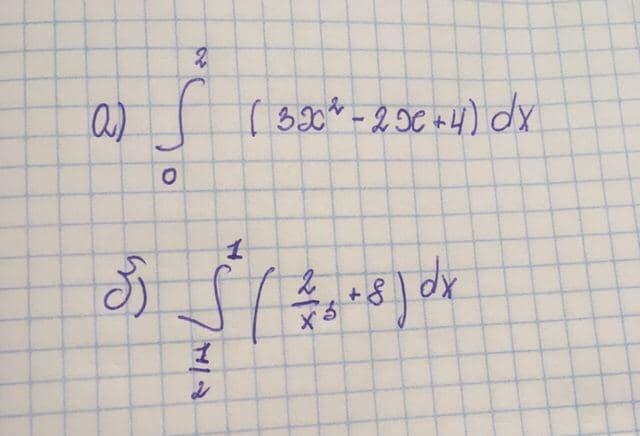 а) ∫₀² (3x² - 2x + 4) dx
б) ∫_{1/2}^{1} (2/x³ + 8) dx